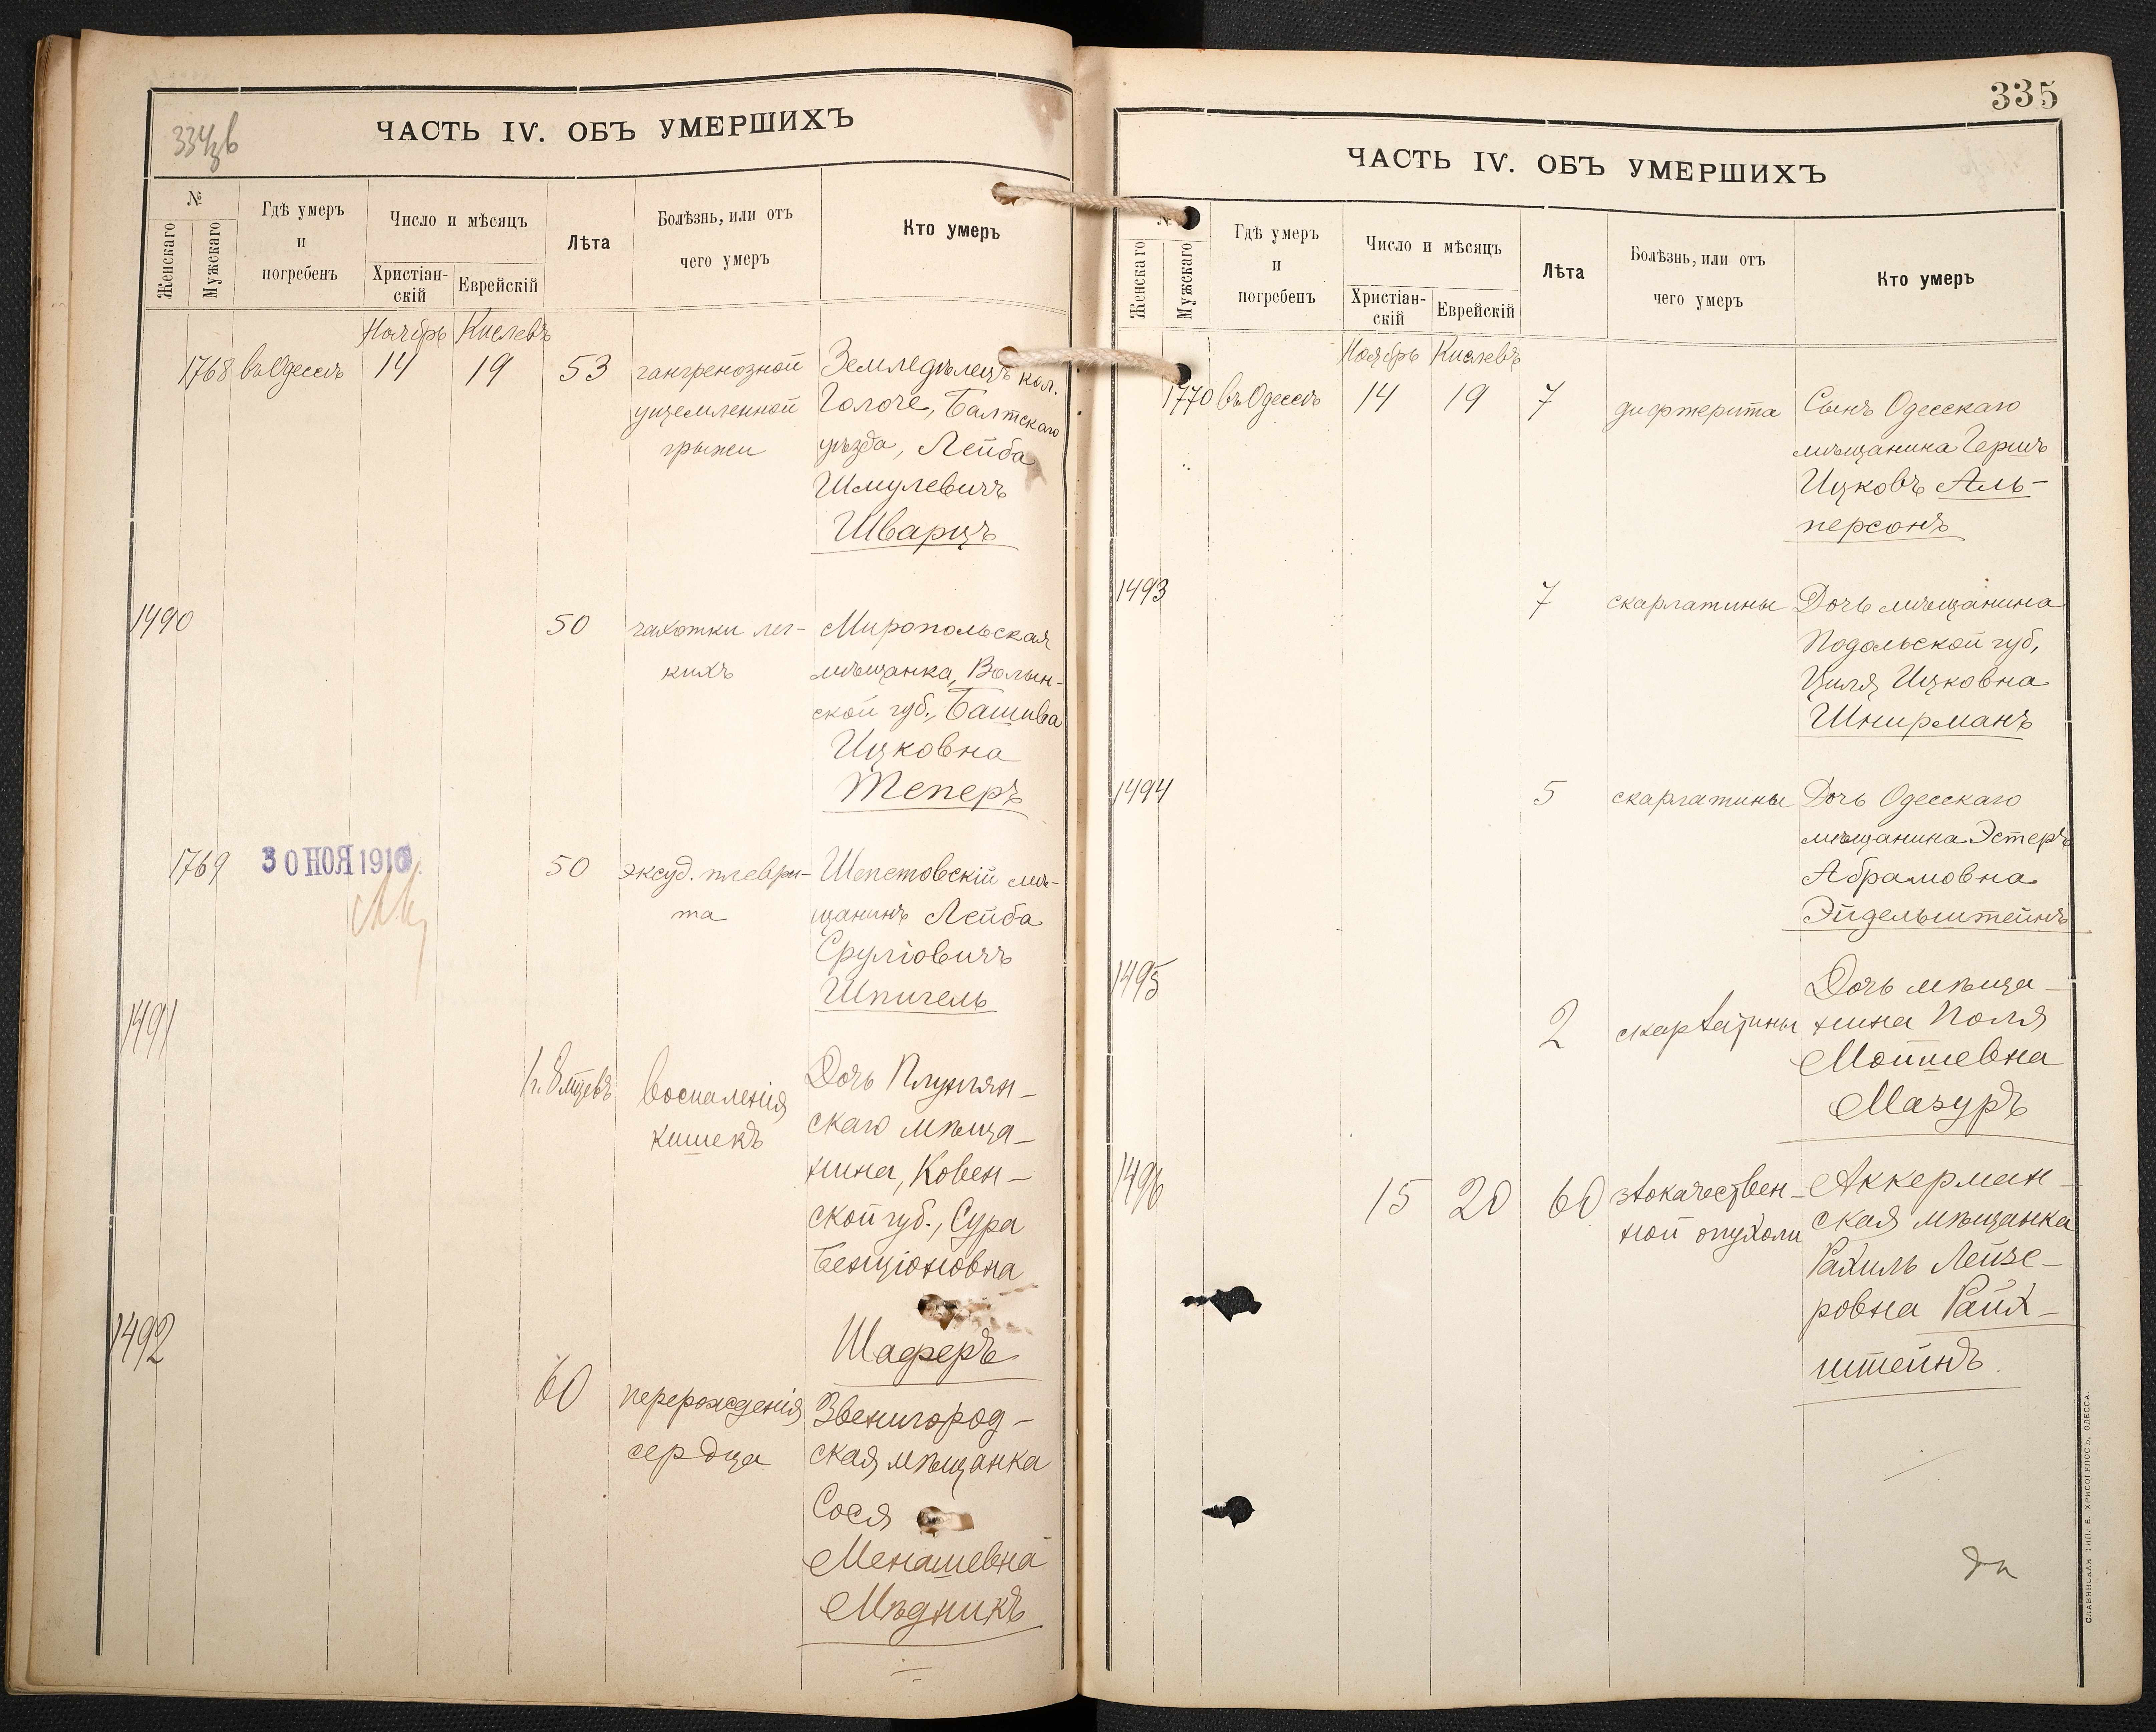 334 зв
ЧАСТЬ IV. ОБЪ УМЕРШИХЪ
№
Женскаго
Мужскаго
Гдѣ умеръ
и
погребенъ
Число и мѣсяцъ
Христіан-
скій
Еврейскій
Лѣта
Болѣзнь, или отъ
чего умеръ
Кто умеръ
Ноябрь Кислевъ
1768 въ Одессѣ 14 19 53 гангренозной Земледѣлецъ кол.
ущемленной Голоче, Балтскаго
грыжи уѣзда, Лейба
Шмулевичъ
Шварцъ
1490 50 чахотки лег- Миропольская
кихъ мѣщанка, Волын-
ской губ., Башива
Ицковна
Теперъ
1769 30 НОЯ 1910 50 эксуд. плеври- Шепетовскій мѣ-
та щанинъ Лейба
Сруліовичъ
Шпигель
1491
1 г. 8 мцевъ воспаленія Дочь Плунгян-
кишекъ скаго мѣща-
нина, Ковен-
ской губ., Сура
Бенціоновна
Шаферъ
1492
60 перерожденія Звенигород-
сердца ская мѣщанка
Сося
Менашевна
Мѣдникъ
335
ЧАСТЬ IV. ОБЪ УМЕРШИХЪ
№
Женскаго
Мужскаго
Гдѣ умеръ
и
погребенъ
Число и мѣсяцъ
Христіан-
скій
Еврейскій
Лѣта
Болѣзнь, или отъ
чего умеръ
Кто умеръ
Ноябрь Кислевъ
1770 въ Одессѣ 14 19 7 дифтерита Сынъ Одесскаго
мѣщанина Гершъ
Ицковъ Аль-
персонъ
1493 7 скарлатины Дочь мѣщанина
Подольской губ,
Циля Ицковна
Шнирманъ
1494 5 скарлатины Дочь Одесскаго
мѣщанина Эстеръ
Абрамовна
Эйдельштейнъ
1495 Дочь мѣща-
2 скарлатины нина Поля
Мошевна
Мазуръ
1496 15 20 60 злокачествен- Аккерман-
ной опухоли ская мѣщанка
Рахиль Лейзе-
ровна Райх-
штейнъ.
СЛАВЯНСКАЯ ТИП. Е. ХРИСОГЕЛОСЪ, ОДЕССА.